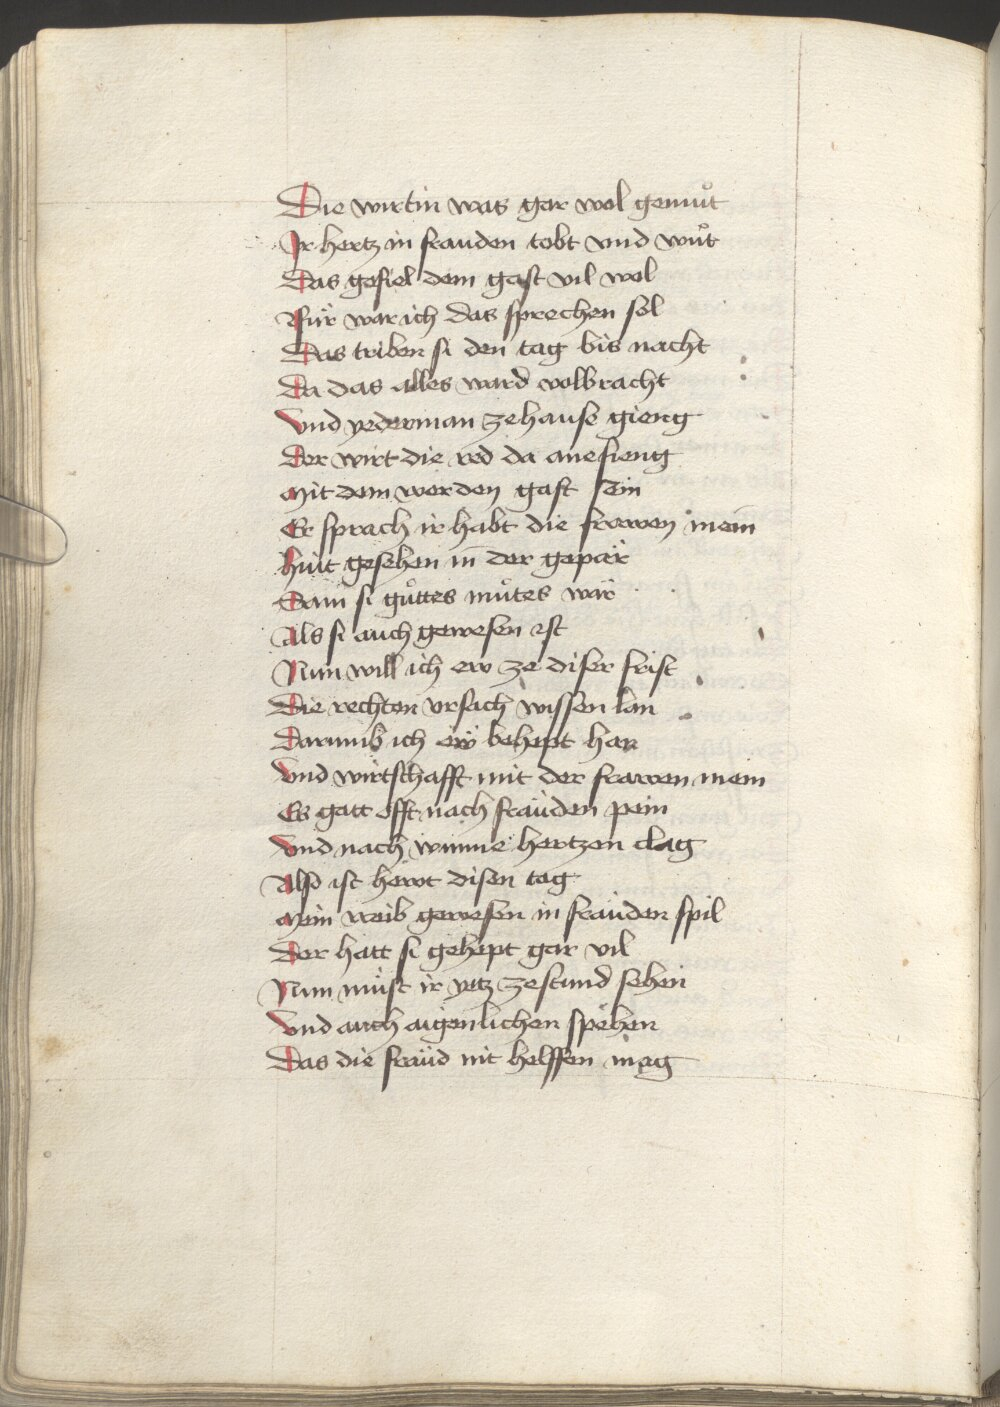 Die wirtin was gar wol gemuͦt
Ir hertz in frauden tobt vnd wuͦt
Das gefiel dem gast vil wol
Fuͤr war ich das sprechen sol
Das triben si den tag bis nacht
Da das alles ward volbracht
Vnd yederman ze hause gieng
Der wirt die red da anefieng
Mit dem werden gast sein
Er sprach ir habt die frawen mein
Huͤt gesehen in der gepaͤr
Sam si guͦttes muͦtes waͤr
Als si auch gewesen ist
Nun will ich ew ze diser frist
Die rechten vrsach wissen lan
Darumb ich eẅ behept han
Vnd wirtschafft mit der frawen mein
Es gatt offt nach fraͤuden pein
Vnd nach wunne hertzen clag
Also ist hewt disen tag
Mein weib gewesen in fraͤuden spil
Der hatt si gehept gar vil
Nun muͤst ir yetz ze stund sehen
Vnd auch aigenlichen spehen
Das die fraͤud nit helffen mag